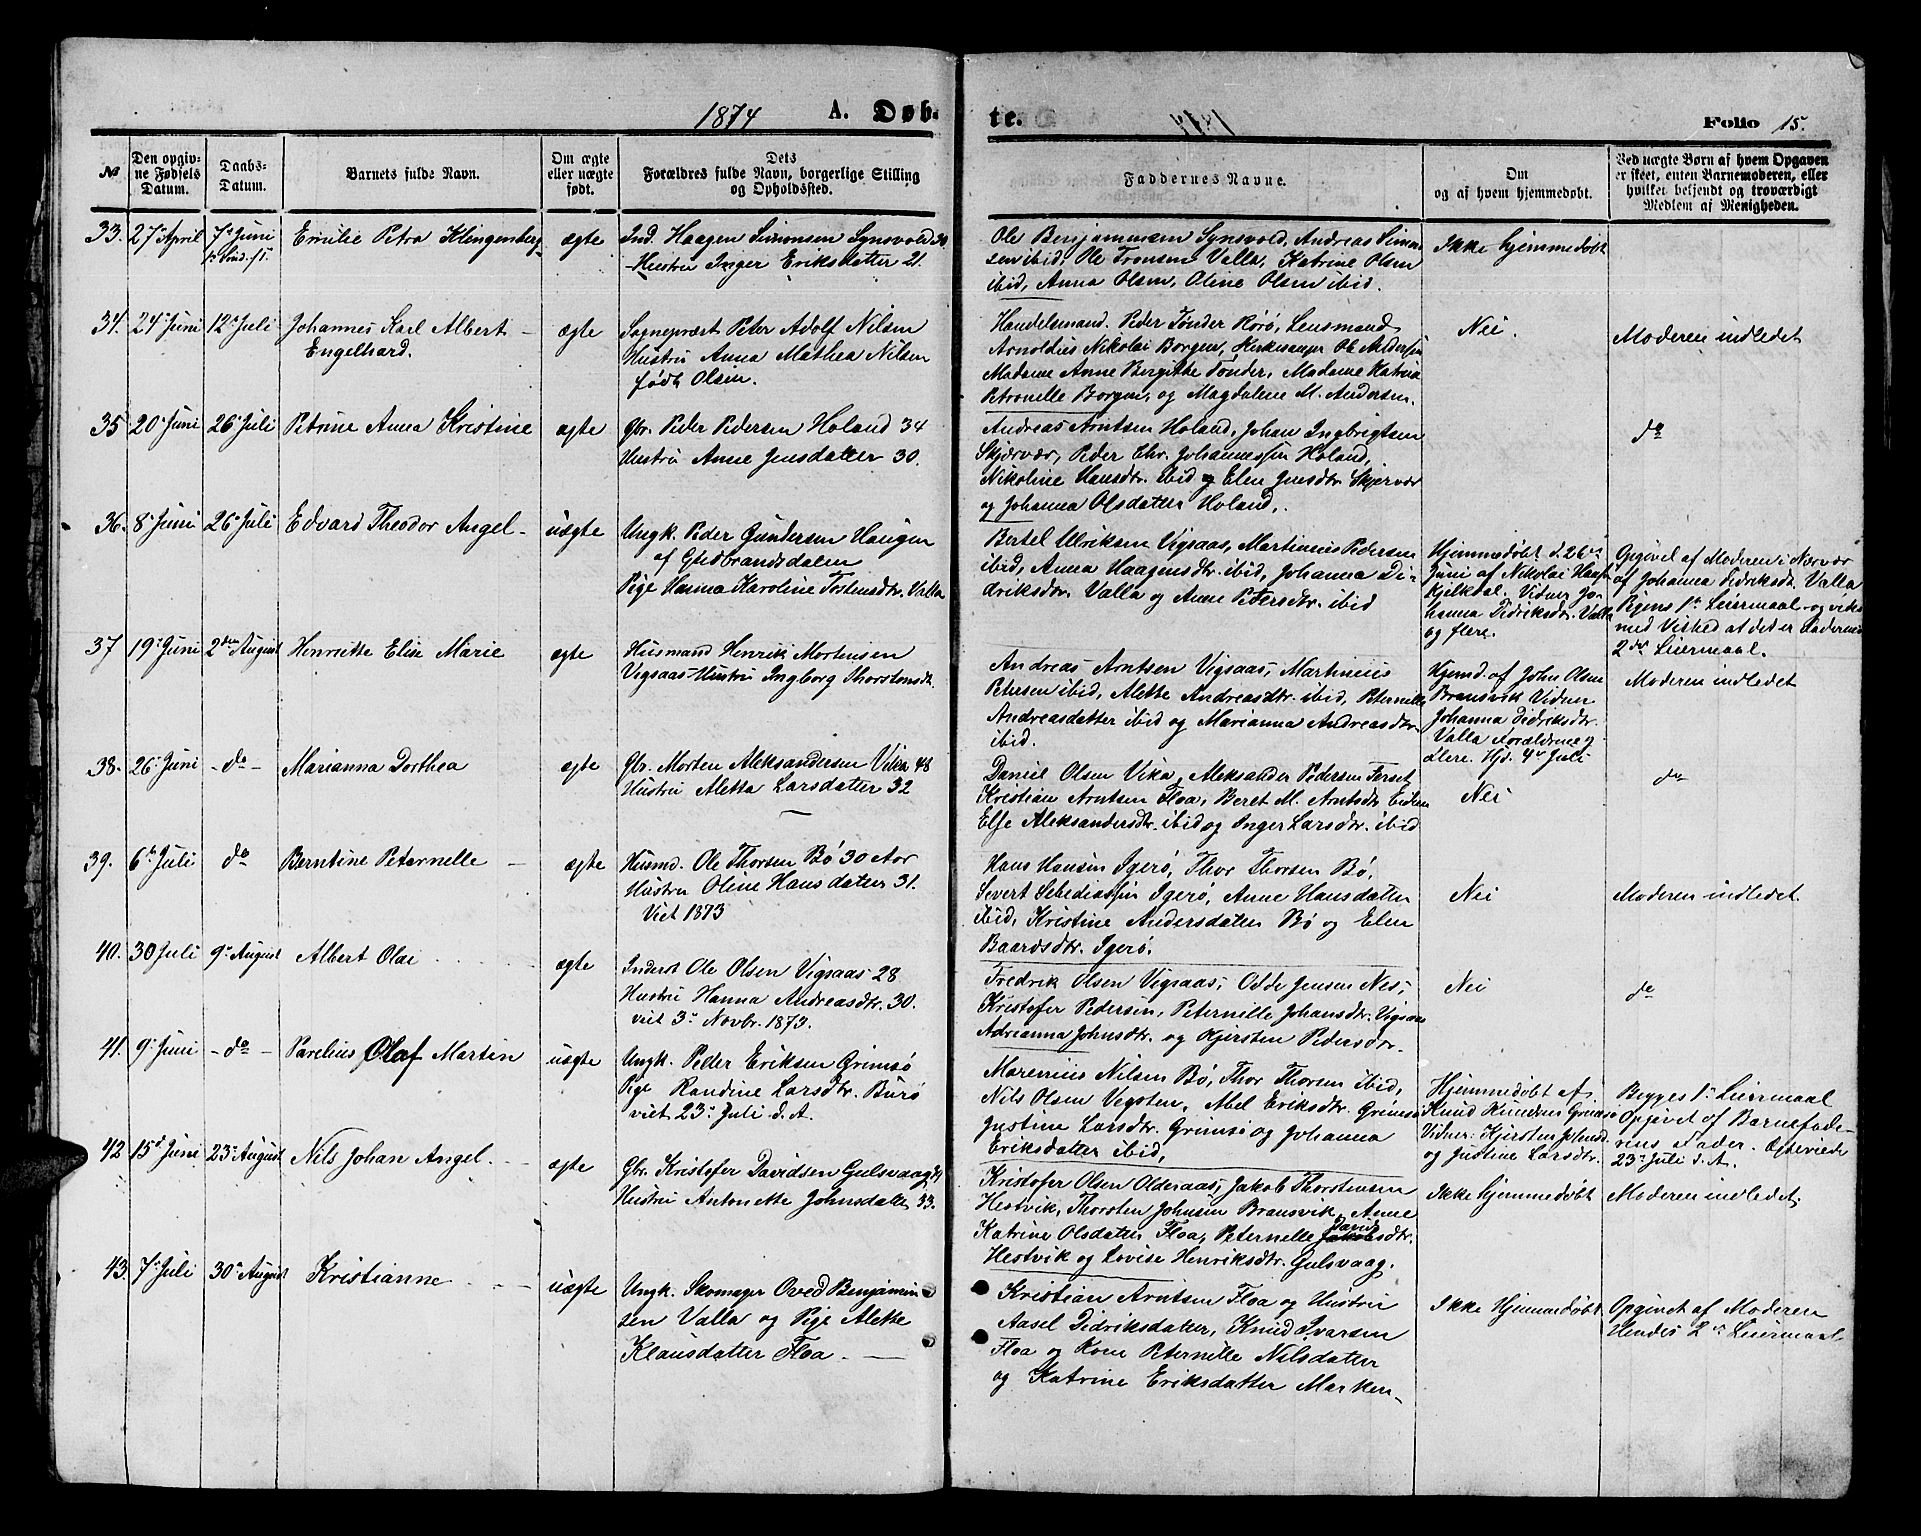 1874 A. Døb-
te. Folio 15.
№
Den opgiv-
ne Fødsels
Datum.
Daabs-
Datum.
Barnets fulde Navn.
Om ægte
eller uægte
født.
Dets
Forældres fulde Navn, borgerlige Stilling
og Opholdssted.
Faddernes Navne.
Om
og af hvem hjemmedøbt.
Ved uægte Børn af hvem Opgaven
er skeet, enten Barnemoderen, eller
hvilket bekjendt og troværdigt
Medlem af Menigheden.
33. 27 April 7 Juni Emilie Petra Klingenberg ægte
Ind. Haagen Simonsen Synsvold 30
Hustru Inger Eriksdatter 21.
Ole Benjaminsen Synsvold, Andreas Simon-
sen ibid, Ole Tronsen Valla, Katrine Olsen
ibid, Anna Olsen, Oline Olsen ibid.
Ikke hjemmedøbt
34. 24 Juni 12 Juli Johannes Karl Albert
Engelhard.
ægte
Sognepræst Peter Adolf Nilsen
Hustru Anna Mathea Nilsen
født Olsen.
Handelsmand Peder Tønder Rørø, Lensmand
Arnoldus Nikolai Borgen, Kirkesanger Ole Andersen
Madame Anne Bergitte Tønder, Madame Katrina
Petronelle Borgen, og Magdalene M. Andersen.
Nei.
Moderen indledet
35 20 Juni 26 Juli Petrine Anna Kristine ægte
Gbr. Peder Pedersen Holand 34
Hustru Anne Jensdatter 30.
Andreas Arntsen Holand, Johan Ingbrigtsen
Skjærvær, Peder Chr. Johannessen Holand,
Nikoline Hansdtr. ibid og Elen Jensdtr. Skjervær
og Johanna Olsdatter Holand.
do
36. 8 Juni 26 Juli Edvard Theodor Angel uægte
Ungk. Peder Gundersen Haugen
af Gudbrandsdalen
Pige Hanna Karoline Tostensdtr. Valla
Bertel Ulriksen Vigsaas, Martinus Pedersen
ibid, Anna Haagensdtr. ibid, Johanna Di-
driksdtr. Valla og Anne Petersdtr. ibid
Hjemmedøbt d. 26de
Juni af Nikolai
Vidner Jo-
hanna Didriksdtr. Valla
og flere.
Opgivet af Moderen i Nærvær
af Johanna Didriksdtr. Valla
Pigens 1ste Leiermaal og
med Vished at det er Faderens
2det Leiermaal.
37 19 Juni 2den August Henrikke Elise Marie ægte
Husmand Henrik Mortensen
Vigsaas Hustru Ingborg Thorstensdtr.
Andreas Arntsen Vigsaas, Martinus
Petersen ibid, Alette Andreasdtr. ibid, Peternelle
Andreasdatter ibid og Marianna Andreasdtr.
ibid.
Hjemd. af John Olsen
Bransvik Vidner
Johanna Didriksdtr.
Valla Forældrene og
flere. Hjd. 4 Juli
Moderen indledet
38. 26 Juni do Marianna Dorthea ægte
Gbr. Morten Aleksandersen Vika 48
Hustru Aletta Larsdatter 32
Daniel Olsen Vika, Aleksander Pedersen Forset
Kristian Arntsen Floa, Beret M. Arntsdtr.
Else Aleksandersdtr. ibid og Inger Larsdtr. ibid
Nei
do
39. 6 Juli do Berntine Peternelle ægte
Husmd. Ole Thorsen Bø 30 Aar
Hustru Oline Hansdatter 31.
Viet 1873
Hans Hansen Igerø, Thor Thorsen Bø,
Severt Sebediassen Igerø, Anne Hansdatter
ibid, Kristine Andersdatter Bø og Elen
Baardsdtr. Igerø.
Nei
Moderen indledet.
40. 30 Juli 9 August Albert Olai ægte
Inderst Ole Olsen Vigsaas 28
Hustru Hanna Andreasdtr. 30.
viet 3 Novbr. 1873.
Fredrik Olsen Vigsaas, Odde Jensen Nes,
Kristofer Pedersen, Peternille Johansdtr. Vigsaas
Adrianna Johnsdtr. og Kjersten Pedersdtr.
Nei
do
41. 9 Juni do Parelius Olaf Martin uægte
Ungk. Peder Eriksen Grimsø
Pige Randine Larsdtr. Burø
viet 23 Juli d. A.
Marenius Nilsen Bø, Thor Thorsen ibid,
Nils Olsen Vegsten, Abel Eriksdtr. Grimsø
Justine Larsdtr. Grimsø og Johanna
Eriksdatter ibid,
Hjemmedøbt af
Knud Knudsen Grimsø
Vidner: Kjersten Johnsd.
og Justine Larsdtr.
Begges 1 Leiermaal
Opgivet af Barnefade-
rens Fader. Ægteviede
23 Juli d. A.
42 15 Juni 23 August Nils Johan Angel ægte
Gbr. Kristofer Davidsen Gulsvaag
Hustru Antonette Johnsdatter 33.
Kristofer Olsen Olderaas, Jakob Thorstensen
Hestvik, Thorsten Johnsen Bransvik, Anne
Katrine Olsdatter Floa, Peternelle Davids Jakobsdtr.
Hestvik og Lovise Henriksdtr. Gulsvaag.
Ikke hjemmedøbt
Moderen indledet.
43. 7 Juli 30 August Kristianne uægte
Ungk. Skomager Oved Benjamin-
sen Valla og Pige Alette
Klausdatter Floa.
Kristian Arntsen Floa og Hustru
Aasel Didriksdatter, Knud Ivarsen
Floa og Kone Peternille Nilsdatter
og Katrine Eriksdatter Marken
Ikke Hjemmedøbt
Opgivet af Moderen
Hendes 2 Leiermaal